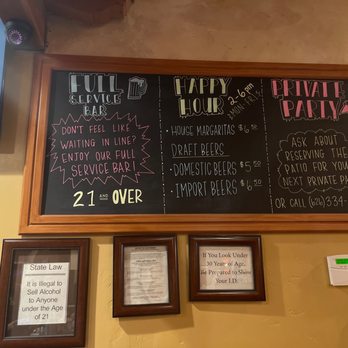 FULL
SERVICE
BAR
DON'T FEEL LIKE
WAITING IN LINE?
ENJOY OUR FULL
SERVICE BAR!
21 AND OVER
HAPPY
HOUR
2-6pm
• HOUSE MARGARITAS $6.50
DRAFT BEERS
• DOMESTIC BEERS $5.50
• IMPORT BEERS $6.50
PRIVATE
PARTY
ASK ABOUT
RESERVING THE
PATIO FOR YOUR
NEXT PRIVATE PA
OR CALL (626) 334-
State Law
It is Illegal to
Sell Alcohol to
Anyone
under the Age
of 21
If You Look Under
30 Years of Age,
Be Prepared to Show
Your I.D.